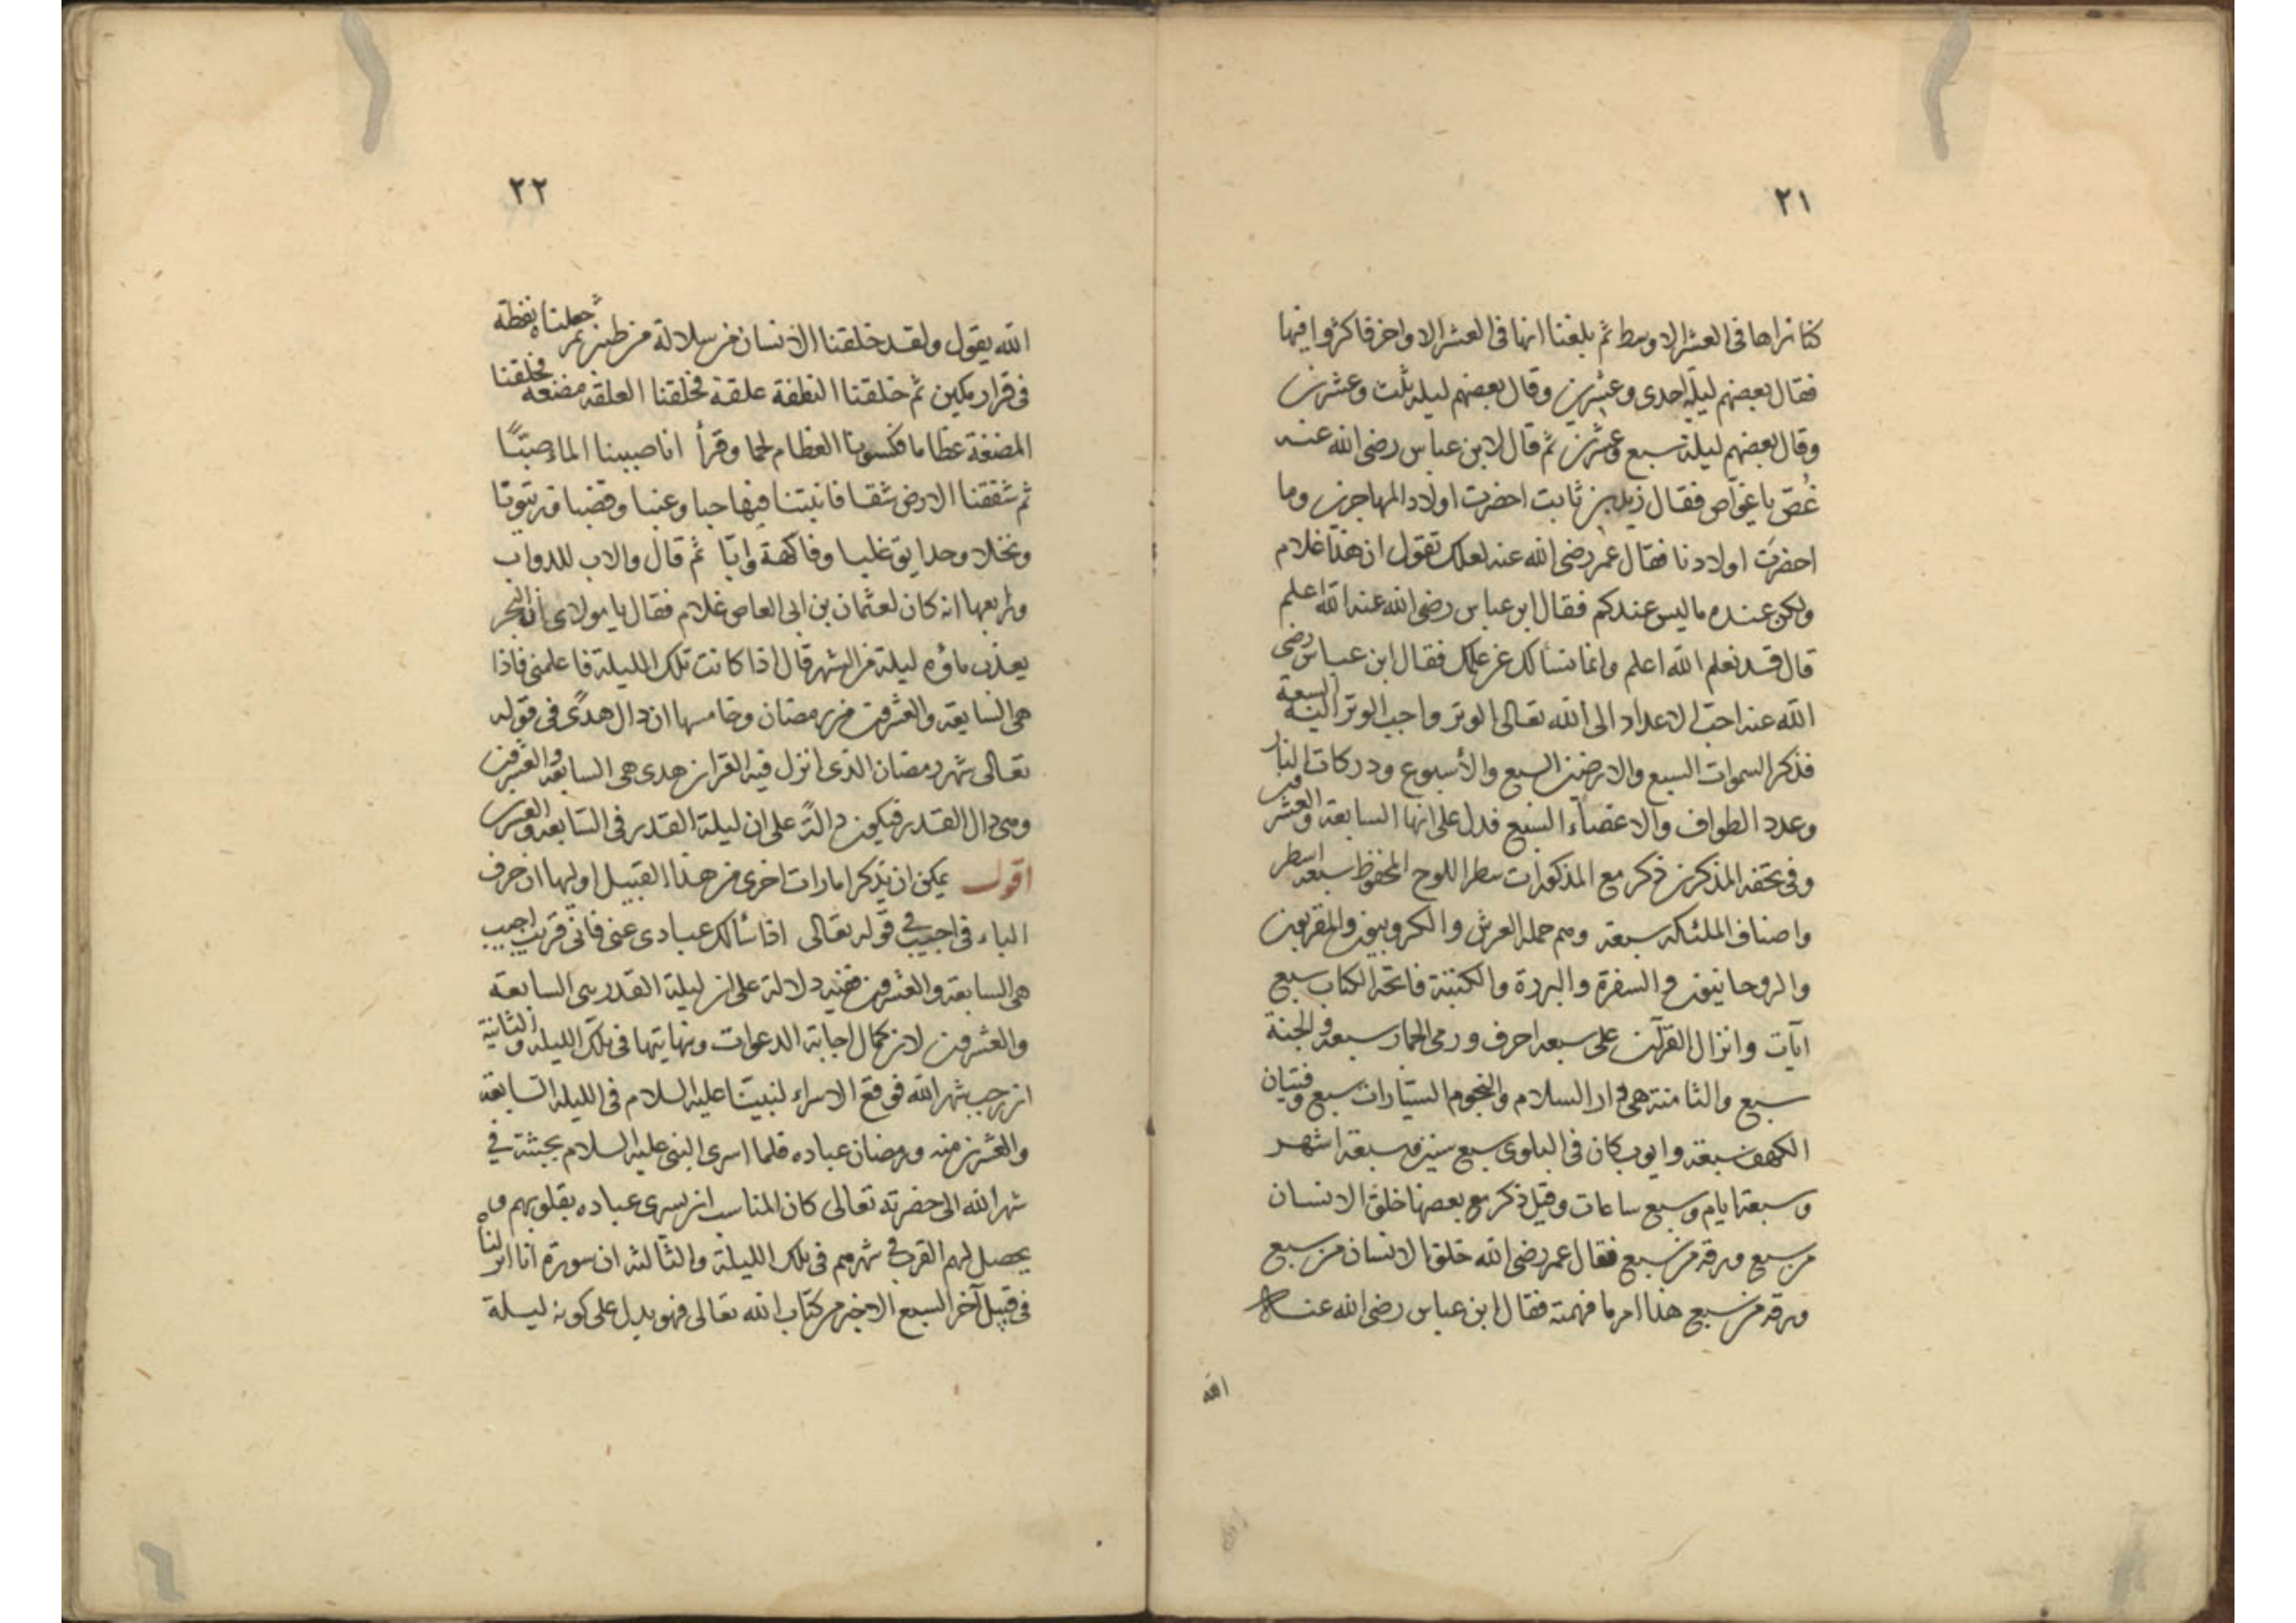 ٢١
كنا نراها فى العشر الاوسط ثم بلغنا انها فى العشر الاواخر فاكثروا فيها
فقال بعضهم ليلة احدى وعشرين وقال بعضهم ليلة ثلت وعشرين
وقال بعضهم ليلة سبع وعشرين ثم قال لابن عباس رضى الله عنه
غُصّ يا غوّاص فقال زيد بن ثابت احضرت اولاد المهاجرين وما
احضرت اولادنا فقال عمر رضى الله عنه لعلك تقول ان هذا غلام
ولكن عنده ما ليس عندكم فقال ابن عباس رضى الله عنه الله اعلم
قال قد نعلم الله اعلم وانما نسألك عن علمك فقال ابن عباس رضى
الله عنه احبّ الاعداد الى الله تعالى الوتر واحب الوتر اليه السبعة
فذكر السموات السبع والارضين السبع والأسبوع ودركات النار
وعدد الطواف والاعضاء السبع فدل على انها السابعة والعشرين
وفى تحفه المذكرين ذكر مع المذكورات سطر اللوح المحفوظ سبعه اسطر
واصناف الملئكه سبعة وهم حملة العرش والكروبيون والمقربون
والروحانيون والسفرة والبررة والكتبة فاتحة الكتاب سبع
آيات وانزال القرآن على سبعه احرف ورمى الجمار سبعه والجنة
سبع والثامنة هى دار السلام والنجوم السيّارات سبع وفتيان
الكهف سبعة وايوب كان فى البلوى سبع سنين وسبعة اشهر
وسبعة ايام وسبع ساعات وقيل ذكر مع بعضها خلق الانسان
من سبع ورزقه من سبع فقال عمر رضى الله خلق الانسان من سبع
ورزقه من سبع هذا امر ما فهمته فقال ابن عباس رضى الله عنه
الله
٢٢
الله يقول ولقد خلقنا الانسان من سلالة من طين ثم جعلناه نطفة
فى قرار مكين ثم خلقنا النطفة علقة فخلقنا العلقة مضغة فخلقنا
المضغة عظاما فكسونا العظام لحما وقرأ انا صببنا الماء صبّاً
ثم شققنا الارض شقا فانبتنا فيها حبا وعنبا وقضبا وزيتونا
ونخلا وحدايق غلبا وفاكهة وابّا ثم قال والاب للدواب
ورابعها انه كان لعثمان بن ابى العاص غلام فقال يا مولاى ان البحر
يعذب ماؤه ليلة من الشهر قال اذا كانت تلك الليلة فاعلمنى فاذا
هى السابعة والعشرون من رمضان وخامسها ان دال هدًى فى قوله
تعالى شهر رمضان الذى انزل فيه القرآن هدى هى السابعة والعشرون
وهى دال القدر فيكون دالّة على ان ليلة القدر فى السّابعه والعشرين
اقول يمكن ان يذكر امارات اخرى من هذا القبيل اوليها ان حرف
الباء فى اجيب فى قوله تعالى اذا سألك عبادى عنى فانى قريب اجيب
هى السابعة والعشرون ففيه دلالة على ان ليلة القدر هى السابعة
والعشرون لان كمال اجابة الدعوات ونهايتها فى تلك الليلة والثانية
ان رجب شهر الله فوقع الاسراء لنبينا عليه السلام فى الليلة السّابعة
والعشرين منه ورمضان عباده فلما اسرى النبى عليه السلام بجثته فى
شهر الله الى حضرته تعالى كان المناسب ان يسرى عباده بقلوبهم و
يحصل لهم القرب فى شهرهم فى تلك الليلة والثالثه ان سورة انا انزلناه
فى قبيل آخر السبع الاخير من كتاب الله تعالى فهو يدل على كونه ليلة